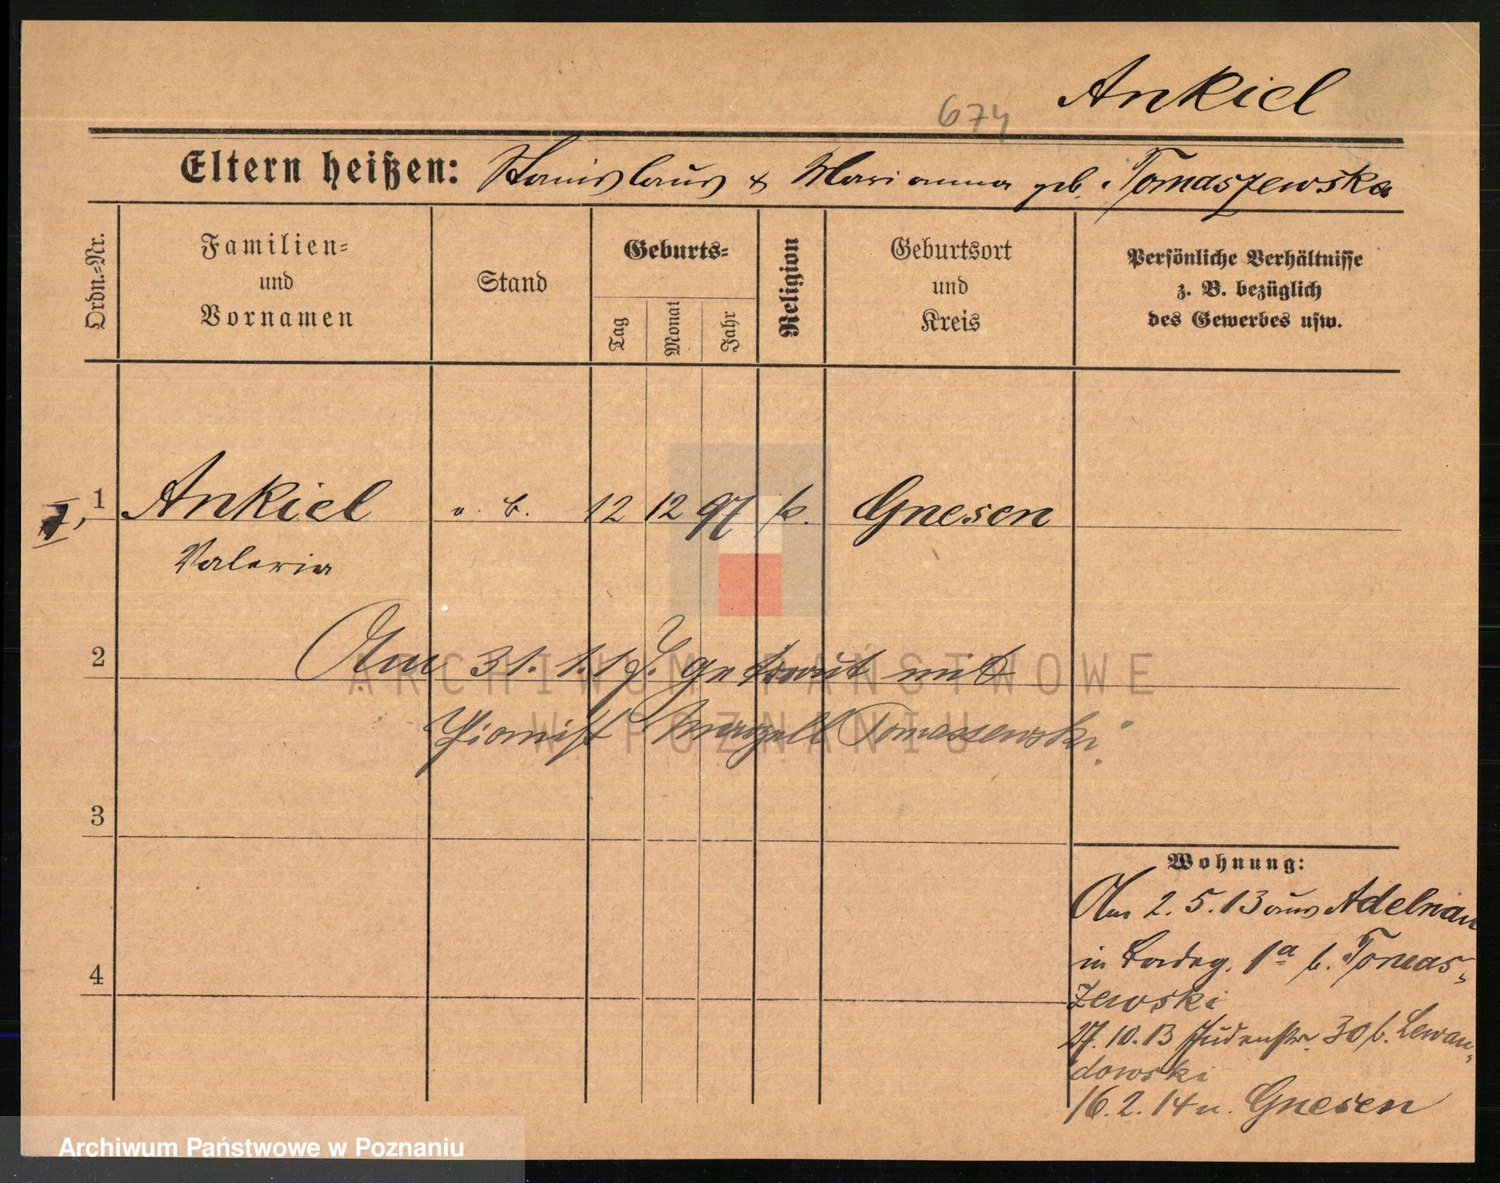 Ankiel
674
Eltern heißen: Stanislaus & Marianna geb. Tomaszewska
Ordn.=Nr.
Familien=
und
Vornamen
Stand
Geburts=
Tag
Monat
Jahr
Religion
Geburtsort
und
Kreis
Persönliche Verhältnisse
z. B. bezüglich
des Gewerbes usw.
1 Ankiel 12 12 97 k. Gnesen
Valeria
2
Am 31. 1. getraut mit
Pionist Marzell Tomassewski.
3
4
Wohnung:
Am 2. 5. 13 aus Adelnau
in 1a b. Tomas-
zewski
27. 10. 13 Judenstr. 30 b. Lewan-
dowski
16. 2. 14 n. Gnesen
ARCHIWUM PAŃSTWOWE
W POZNANIU
Archiwum Państwowe w Poznaniu